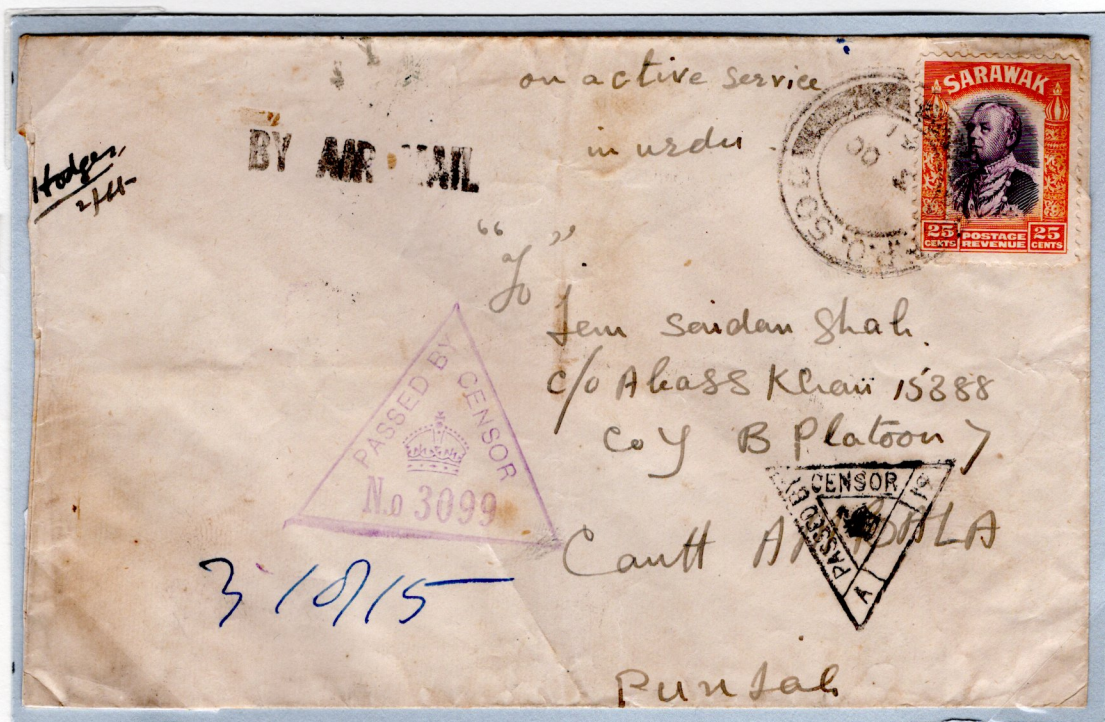 on active service
in urdu
BY AIR MAIL
Hodges
SARAWAK
25 CENTS
POSTAGE REVENUE
25 CENTS
"To"
Jem Saidan Shah.
c/o Abass Khan 15388
Coy B Platoon 7
PASSED BY CENSOR
No 3099
PASSED BY CENSOR
A
Cantt AMBALA
3/8/15
Punjab